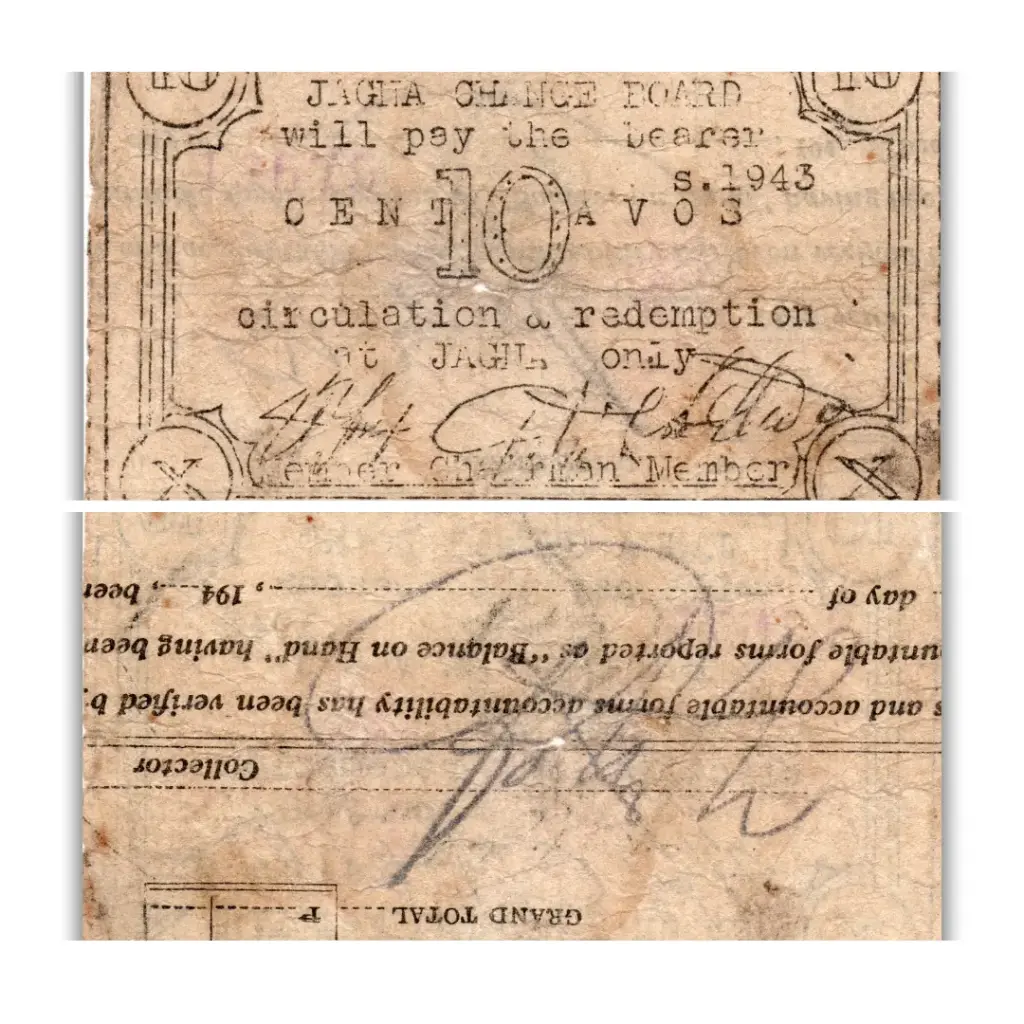 10 10
JAGNA CHANGE BOARD
will pay the bearer
s.1943
CENT 10 AVOS
circulation & redemption
at JAGNA only
Member Chairman Member
X X
GRAND TOTAL P
Collector
s and accountable forms accountability has been verified b
untable forms reported as "Balance on Hand" having been
day of , 194 , been